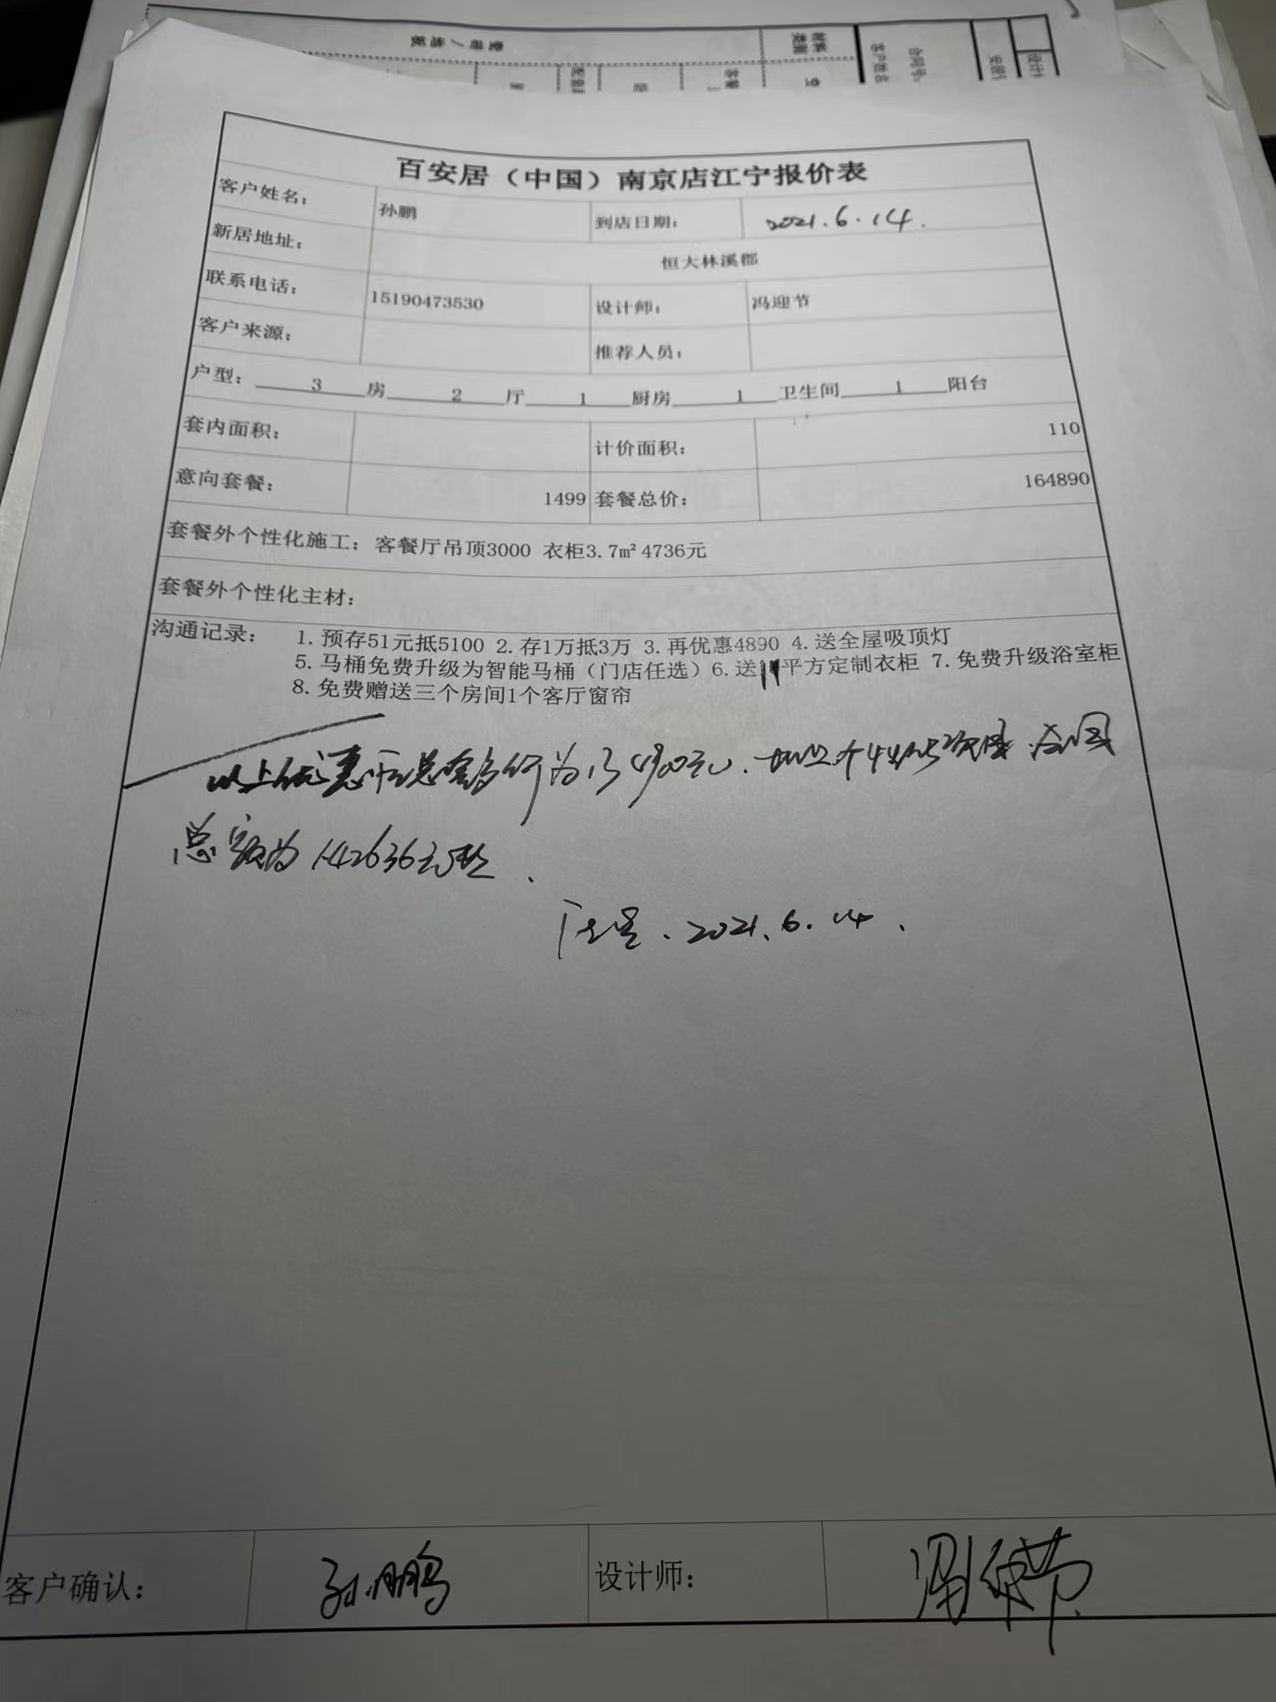 百安居（中国）南京店江宁报价表
客户姓名： 孙鹏 到店日期： 2021.6.14.
新居地址： 恒大林溪郡
联系电话： 15190473530 设计师： 冯迎节
客户来源： 推荐人员：
户型： 3 房 2 厅 1 厨房 1 卫生间 1 阳台
套内面积： 计价面积： 110
意向套餐： 1499 套餐总价： 164890
套餐外个性化施工：客餐厅吊顶3000 衣柜3.7m² 4736元
套餐外个性化主材：
沟通记录： 1.预存51元抵5100 2.存1万抵3万 3.再优惠4890 4.送全屋吸顶灯
5.马桶免费升级为智能马桶（门店任选）6.送 平方定制衣柜 7.免费升级浴室柜
8.免费赠送三个房间1个客厅窗帘
以上优惠后总套餐价为134900元.
总额为142636元整.
2021.6.14.
客户确认： 孙鹏 设计师： 冯迎节